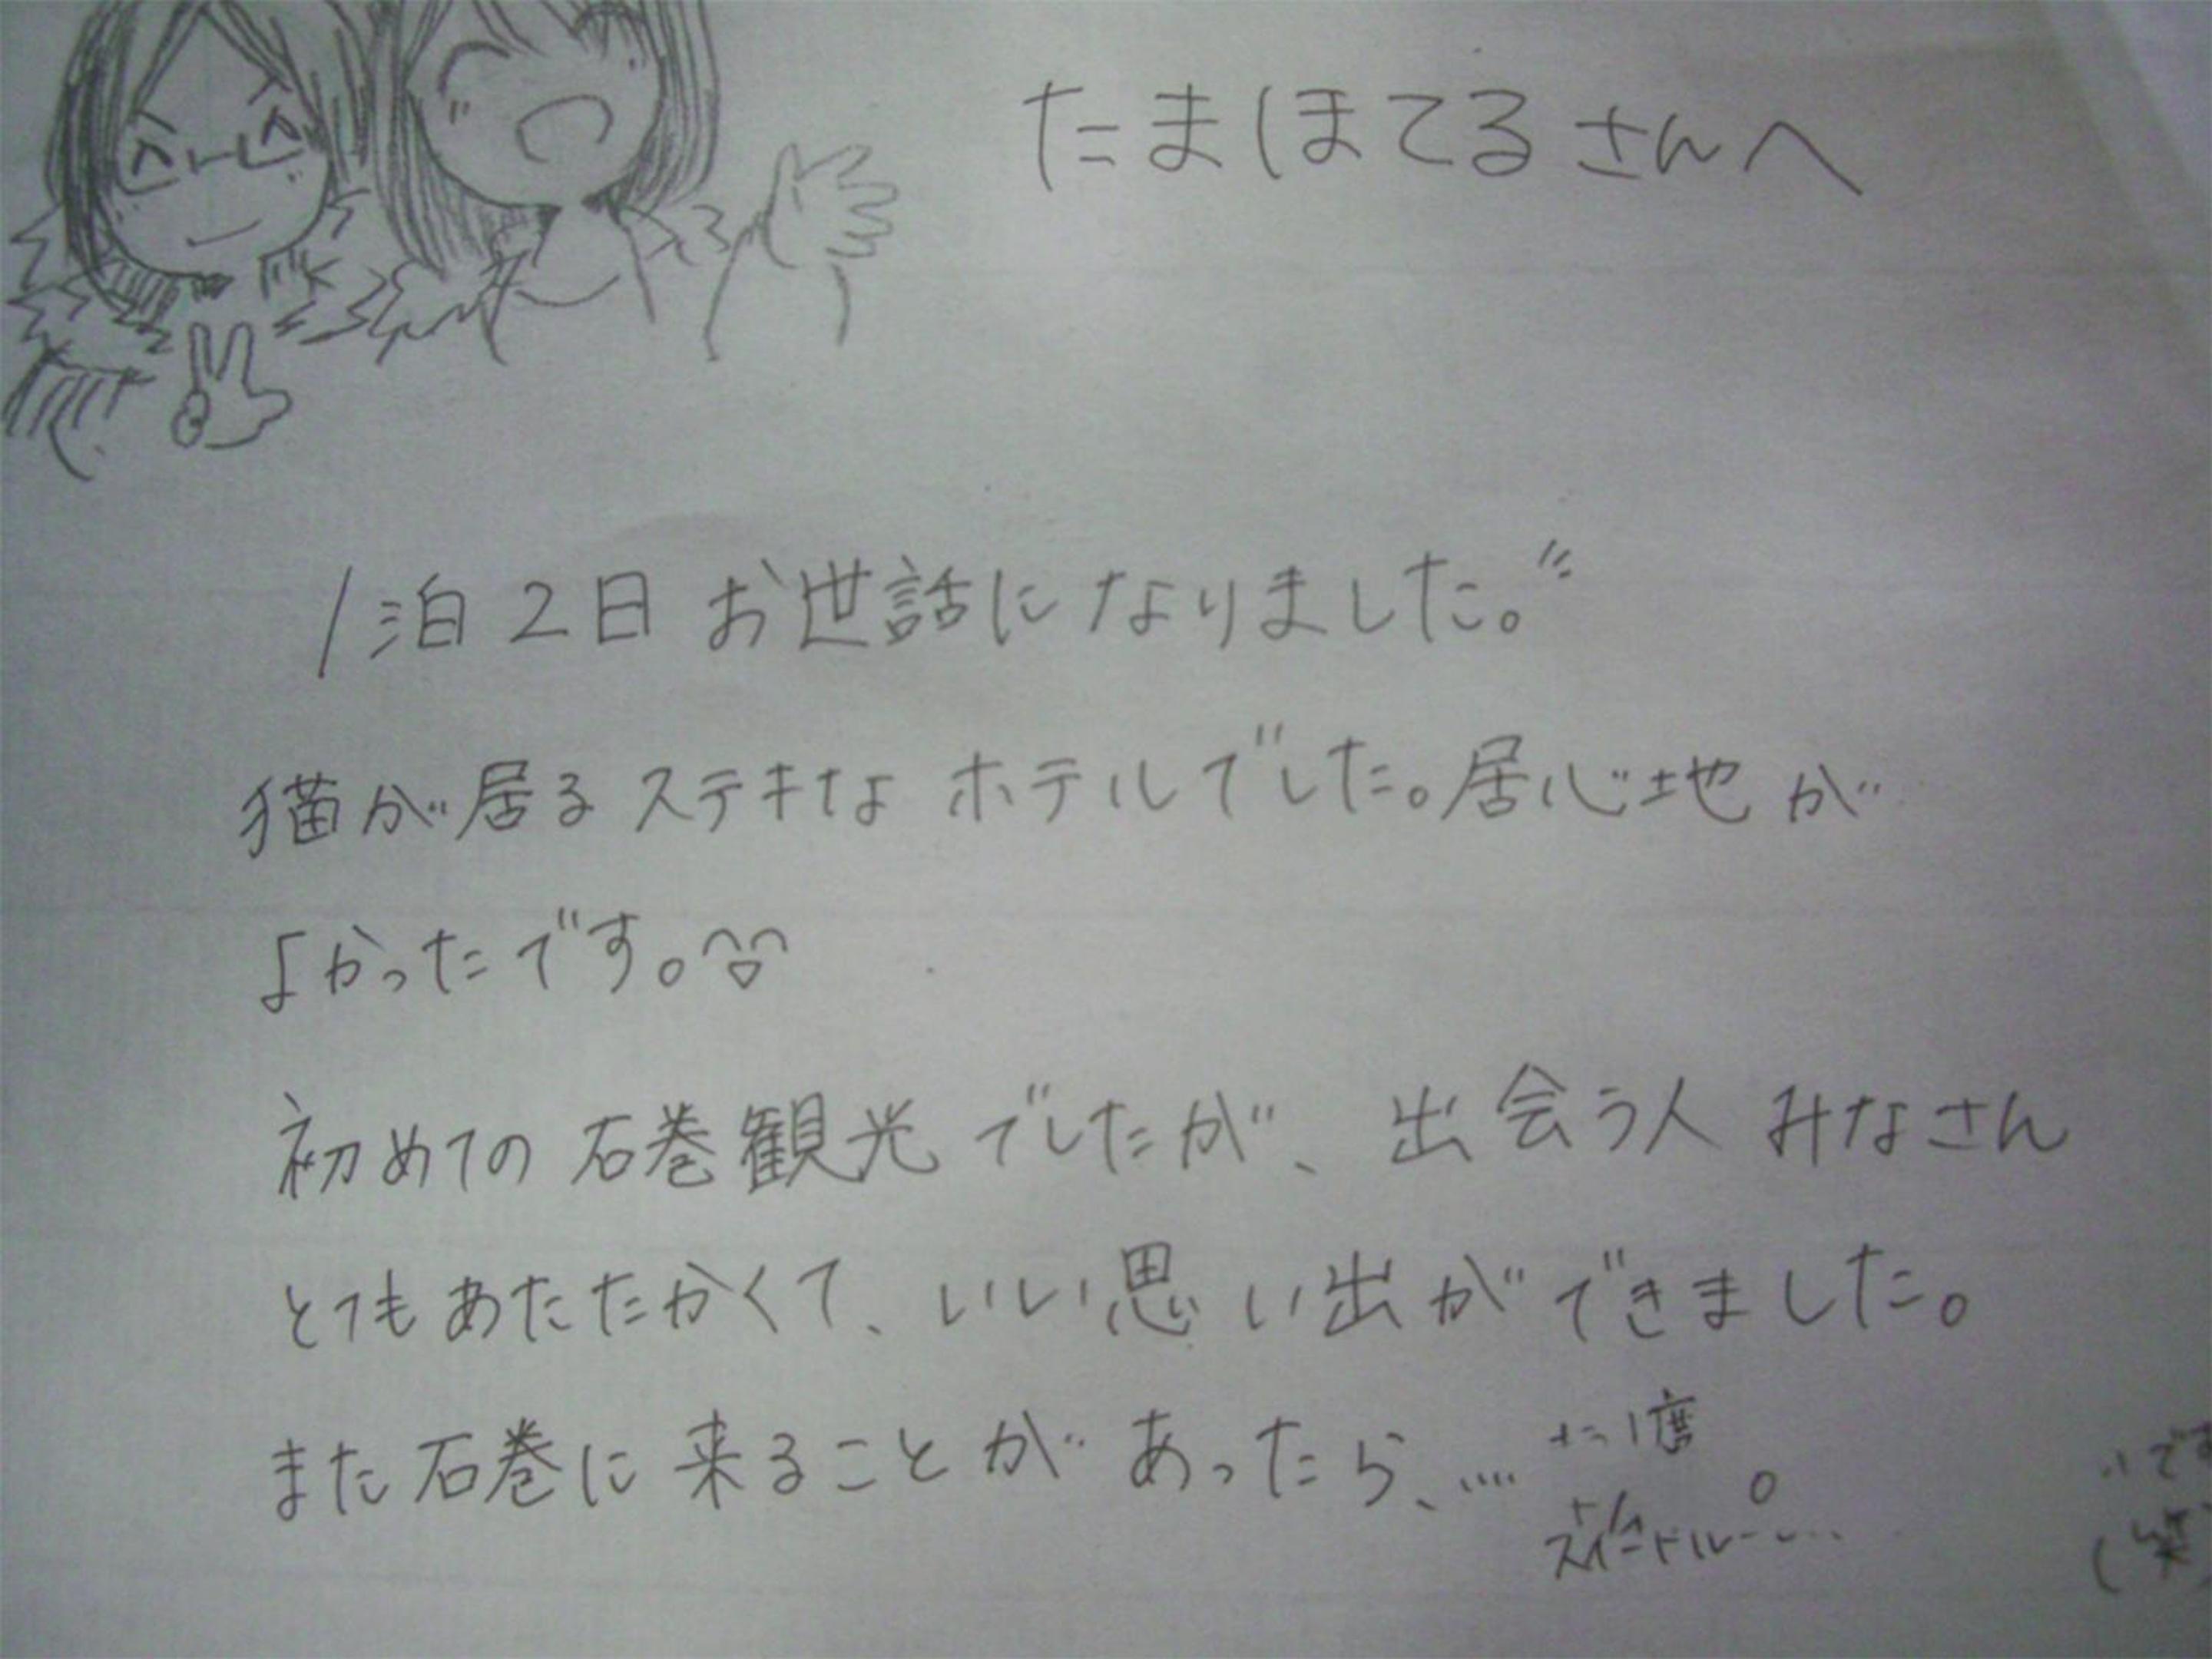 たまほてるさんへ
1泊2日 お世話になりました。
猫が居るステキな ホテルでした。居心地が
よかったです。
初めての 石巻観光でしたが、出会う人 みなさん
とてもあたたかくて、いい思い出ができました。
また石巻に来ることが あったら、....
1度
です
(笑